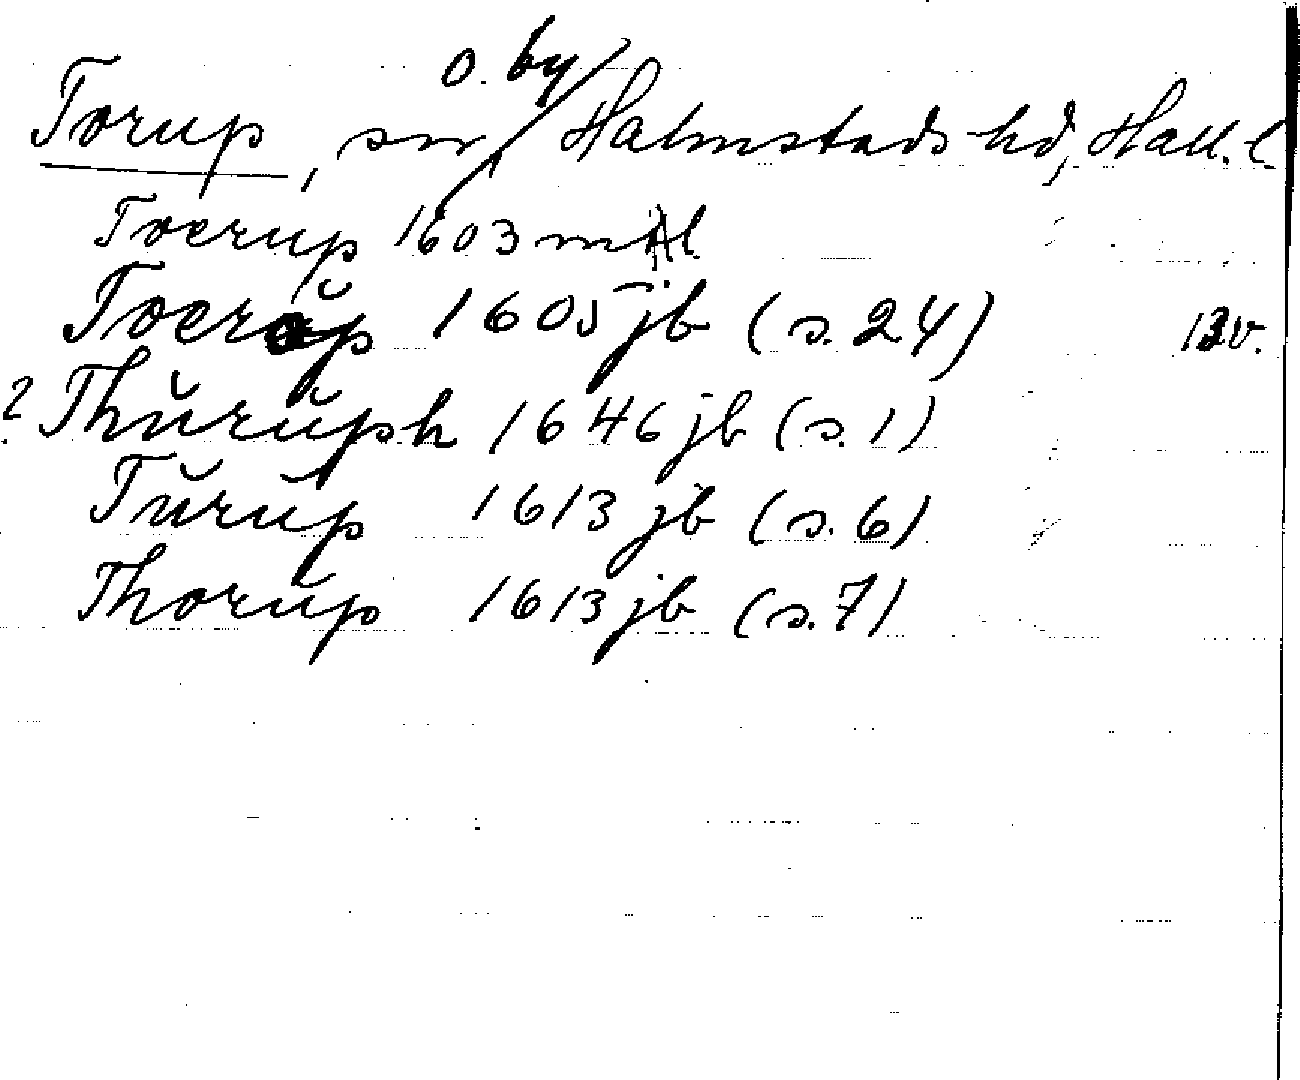 Torup, sn o. by Halmstads hd, Hall. l.
Toerup 1603 mtl
Toerŭp 1605 jb (s. 24) 13 v.
? Thŭrŭph 1646 jb (s. 1)
Tŭrŭp 1613 jb (s. 6)
Thorŭp 1613 jb (s. 7)